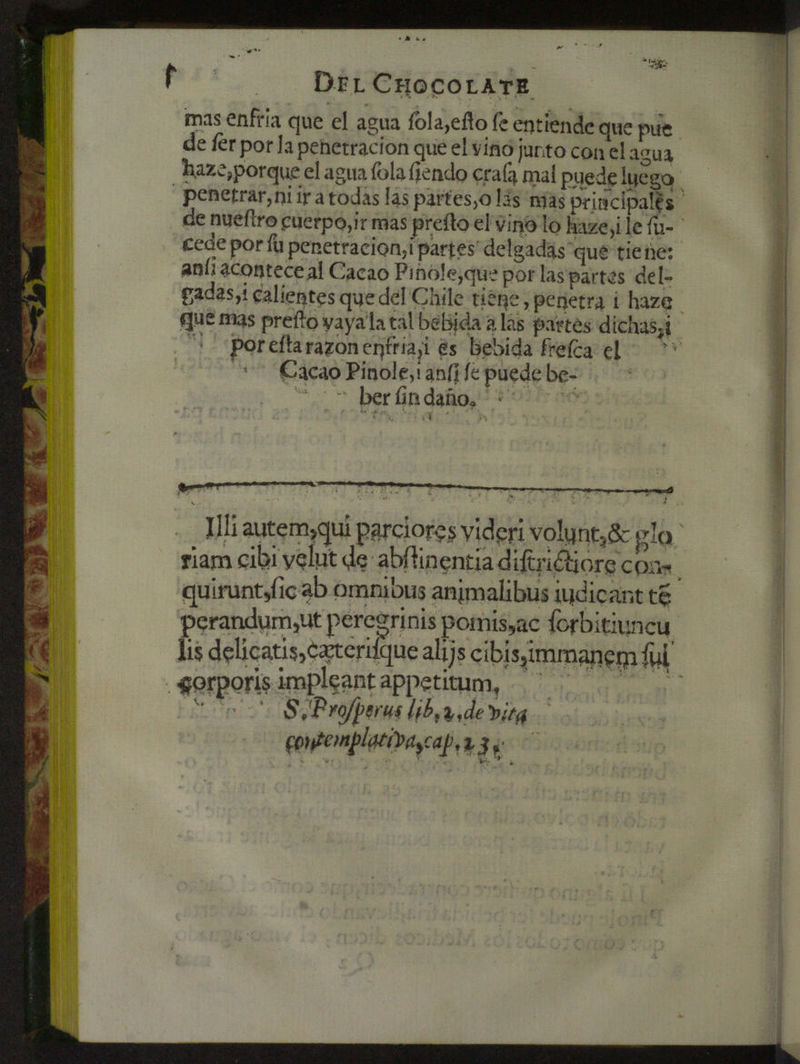 DEL CHOCOLATE
mas enfria que el agua ſola,eſto ſe entiende que pue
de ſer por la penetracion que el vino junto con el agua
haze,porque el agua ſola ſiendo craſa mal puede luego
penetrar,ni ir a todas las partes,o las mas principales
de nueſtro cuerpo,ir mas preſto el vino lo haze,i le ſu-
cede por ſu penetracion,i partes delgadas que tiene:
anſi acontece al Cacao Pinole,que por las partes del-
gadas,i calientes que del Chile tiene, penetra i haze
que mas preſto vaya la tal bebida a las partes dichas,i
por eſta razon enfria,i es bebida freſca el
Cacao Pinole,i anſi ſe puede be-
ber ſin daño.
Illi autem,qui parciores videri volunt,& glo
riam cibi velut de abſtinentia diſtrictiore con-
quirunt,ſic ab omnibus animalibus iudicant tē
perandum,ut peregrinis pomis,ac ſorbitiuncu
lis delicatis,cæteriſque alijs cibis,immanem ſui
corporis impleant appetitum,
S. Proſperus lib. 2. de vita
contemplativa, cap. 23.